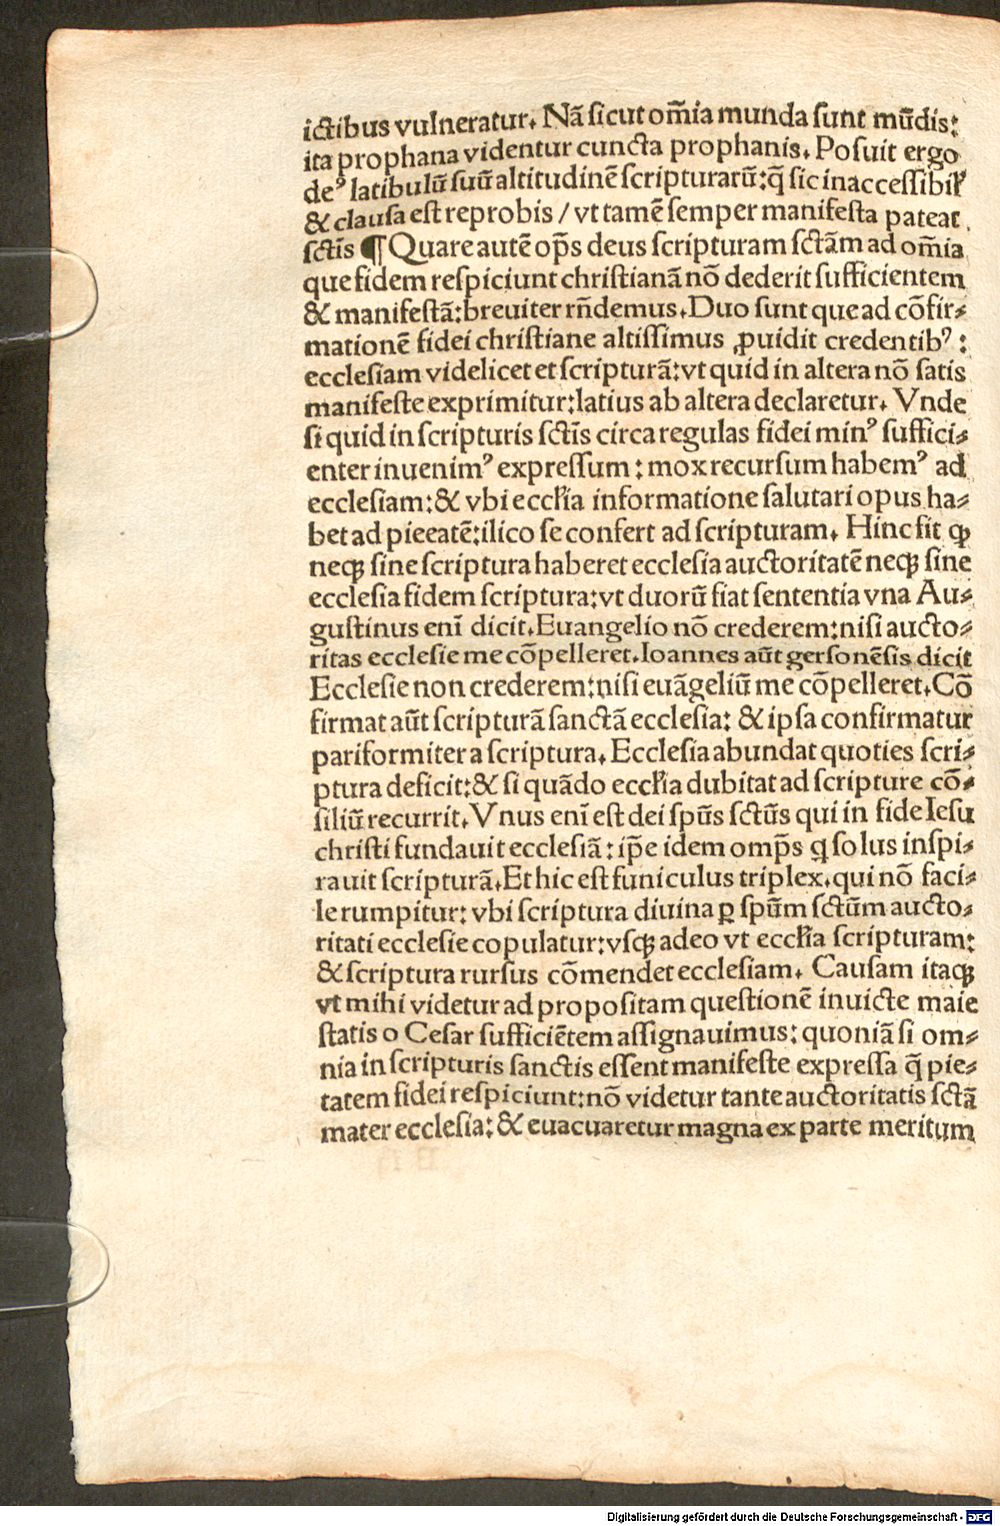 ictibus vulneratur. Nā sicut om̄ia munda sunt mūdis:
ita prophana videntur cuncta prophanis. Posuit ergo
deꝰ latibulū suū altitudinē scripturarū: q̄ sic inaccessibil'
& clausa est reprobis / vt tamē semper manifesta pateat
sctīs ¶ Quare autē op̄s deus scripturam sctām ad om̄ia
que fidem respiciunt christianā nō dederit sufficientem
& manifestā: breuiter rn̄demus. Duo sunt que ad cōfir⸗
mationē fidei christiane altissimus ꝓuidit credentibꝰ:
ecclesiam videlicet et scripturā: vt quid in altera nō satis
manifeste exprimitur: latius ab altera declaretur. Vnde
si quid in scripturis sctīs circa regulas fidei minꝰ suffici⸗
enter inuenimꝰ expressum: mox recursum habemꝰ ad
ecclesiam: & vbi eccl'ia informatione salutari opus ha⸗
bet ad pieeatē: ilico se confert ad scripturam. Hinc fit ꝙ
neqꝫ sine scriptura haberet ecclesia auctoritatē neqꝫ sine
ecclesia fidem scriptura: vt duorū fiat sententia vna Au⸗
gustinus enī dicit. Euangelio nō crederem: nisi aucto⸗
ritas ecclesie me cōpelleret. Ioannes aūt gersonēsis dicit
Ecclesie non crederem: nisi euāgeliū me cōpelleret. Cō
firmat aūt scripturā sanctā ecclesia: & ipsa confirmatur
pariformiter a scriptura. Ecclesia abundat quoties scri⸗
ptura deficit: & si quādo eccl'ia dubitat ad scripture cō⸗
siliū recurrit. Vnus enī est dei spūs sctūs qui in fide Iesu
christi fundauit ecclesiā: ip̄e idem omp̄s q solus inspi⸗
rauit scripturā. Et hic est funiculus triplex. qui nō faci⸗
le rumpitur: vbi scriptura diuina ꝑ spūm sctūm aucto⸗
ritati ecclesie copulatur: vsqꝫ adeo vt eccl'ia scripturam:
& scriptura rursus cōmendet ecclesiam. Causam itaqꝫ
vt mihi videtur ad propositam questionē inuicte maie
statis o Cesar sufficiētem assignauimus: quoniā si om⸗
nia in scripturis sanctis essent manifeste expressa q̄ pie⸗
tatem fidei respiciunt: nō videtur tante auctoritatis sctā
mater ecclesia: & euacuaretur magna ex parte meritum
Digitalisierung gefördert durch die Deutsche Forschungsgemeinschaft - DFG